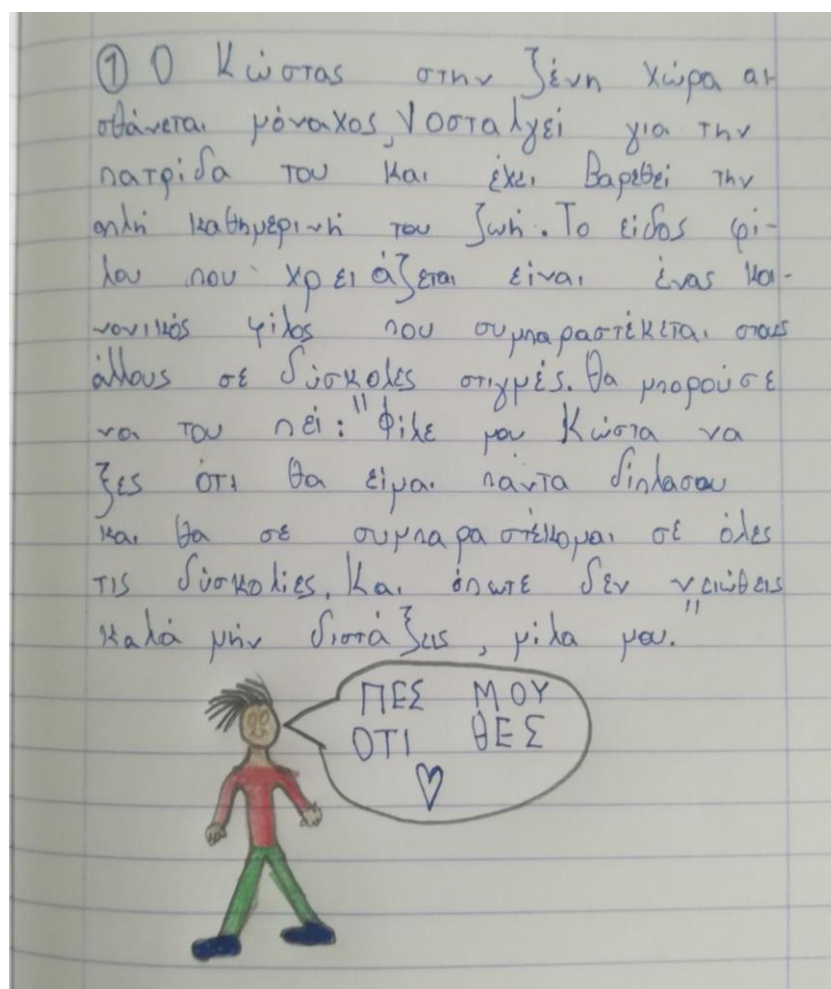 ① Ο Κώστας στην ξένη χώρα αι-
σθάνεται μόναχος, Νοσταλγεί για την
πατρίδα του και έχει βαρεθεί την
απλή καθημερινή του ζωή. Το είδος φί-
λου που χρειάζεται είναι ένας κα-
νονικός φίλος που συμπαραστέκεται στους
άλλους σε δύσκολες στιγμές. Θα μπορούσε
να του πεί: "Φίλε μου Κώστα να
ξες ότι θα είμαι πάντα δίπλασου
και θα σε συμπαραστέκομαι σε όλες
τις δύσκολίες. Και όπωτε δεν νειώθεις
καλά μήν διστάζεις, μίλα μου."
ΠΕΣ ΜΟΥ
ΟΤΙ ΘΕΣ